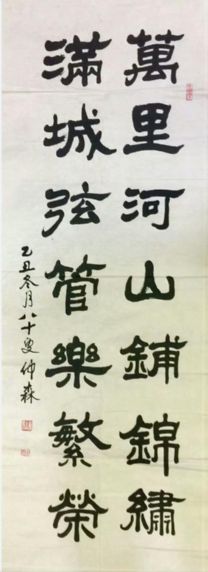 萬里河山鋪錦繡
滿城弦管樂繁榮
乙丑冬月八十叟仲森